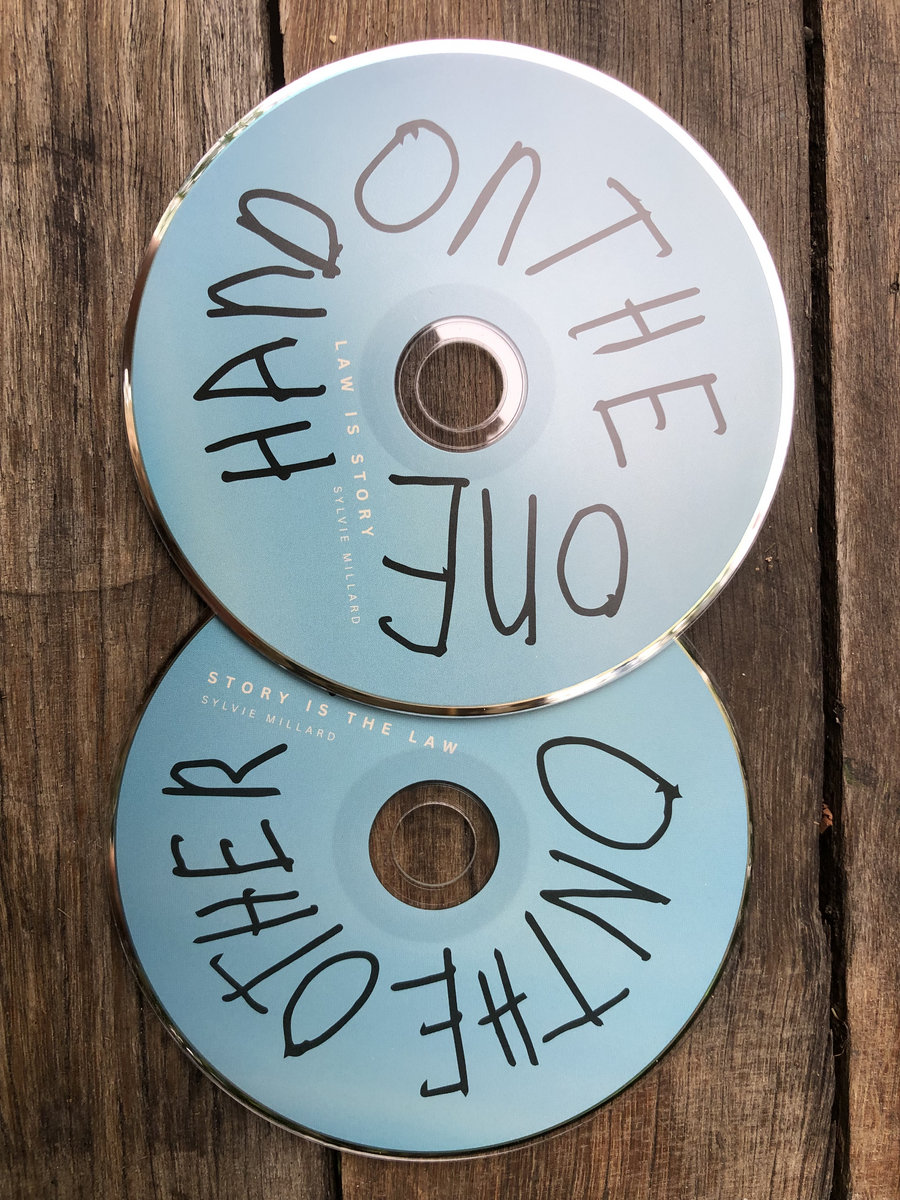 ON THE ONE HAND
LAW IS STORY
SYLVIE MILLARD
STORY IS THE LAW
SYLVIE MILLARD
ON THE OTHER